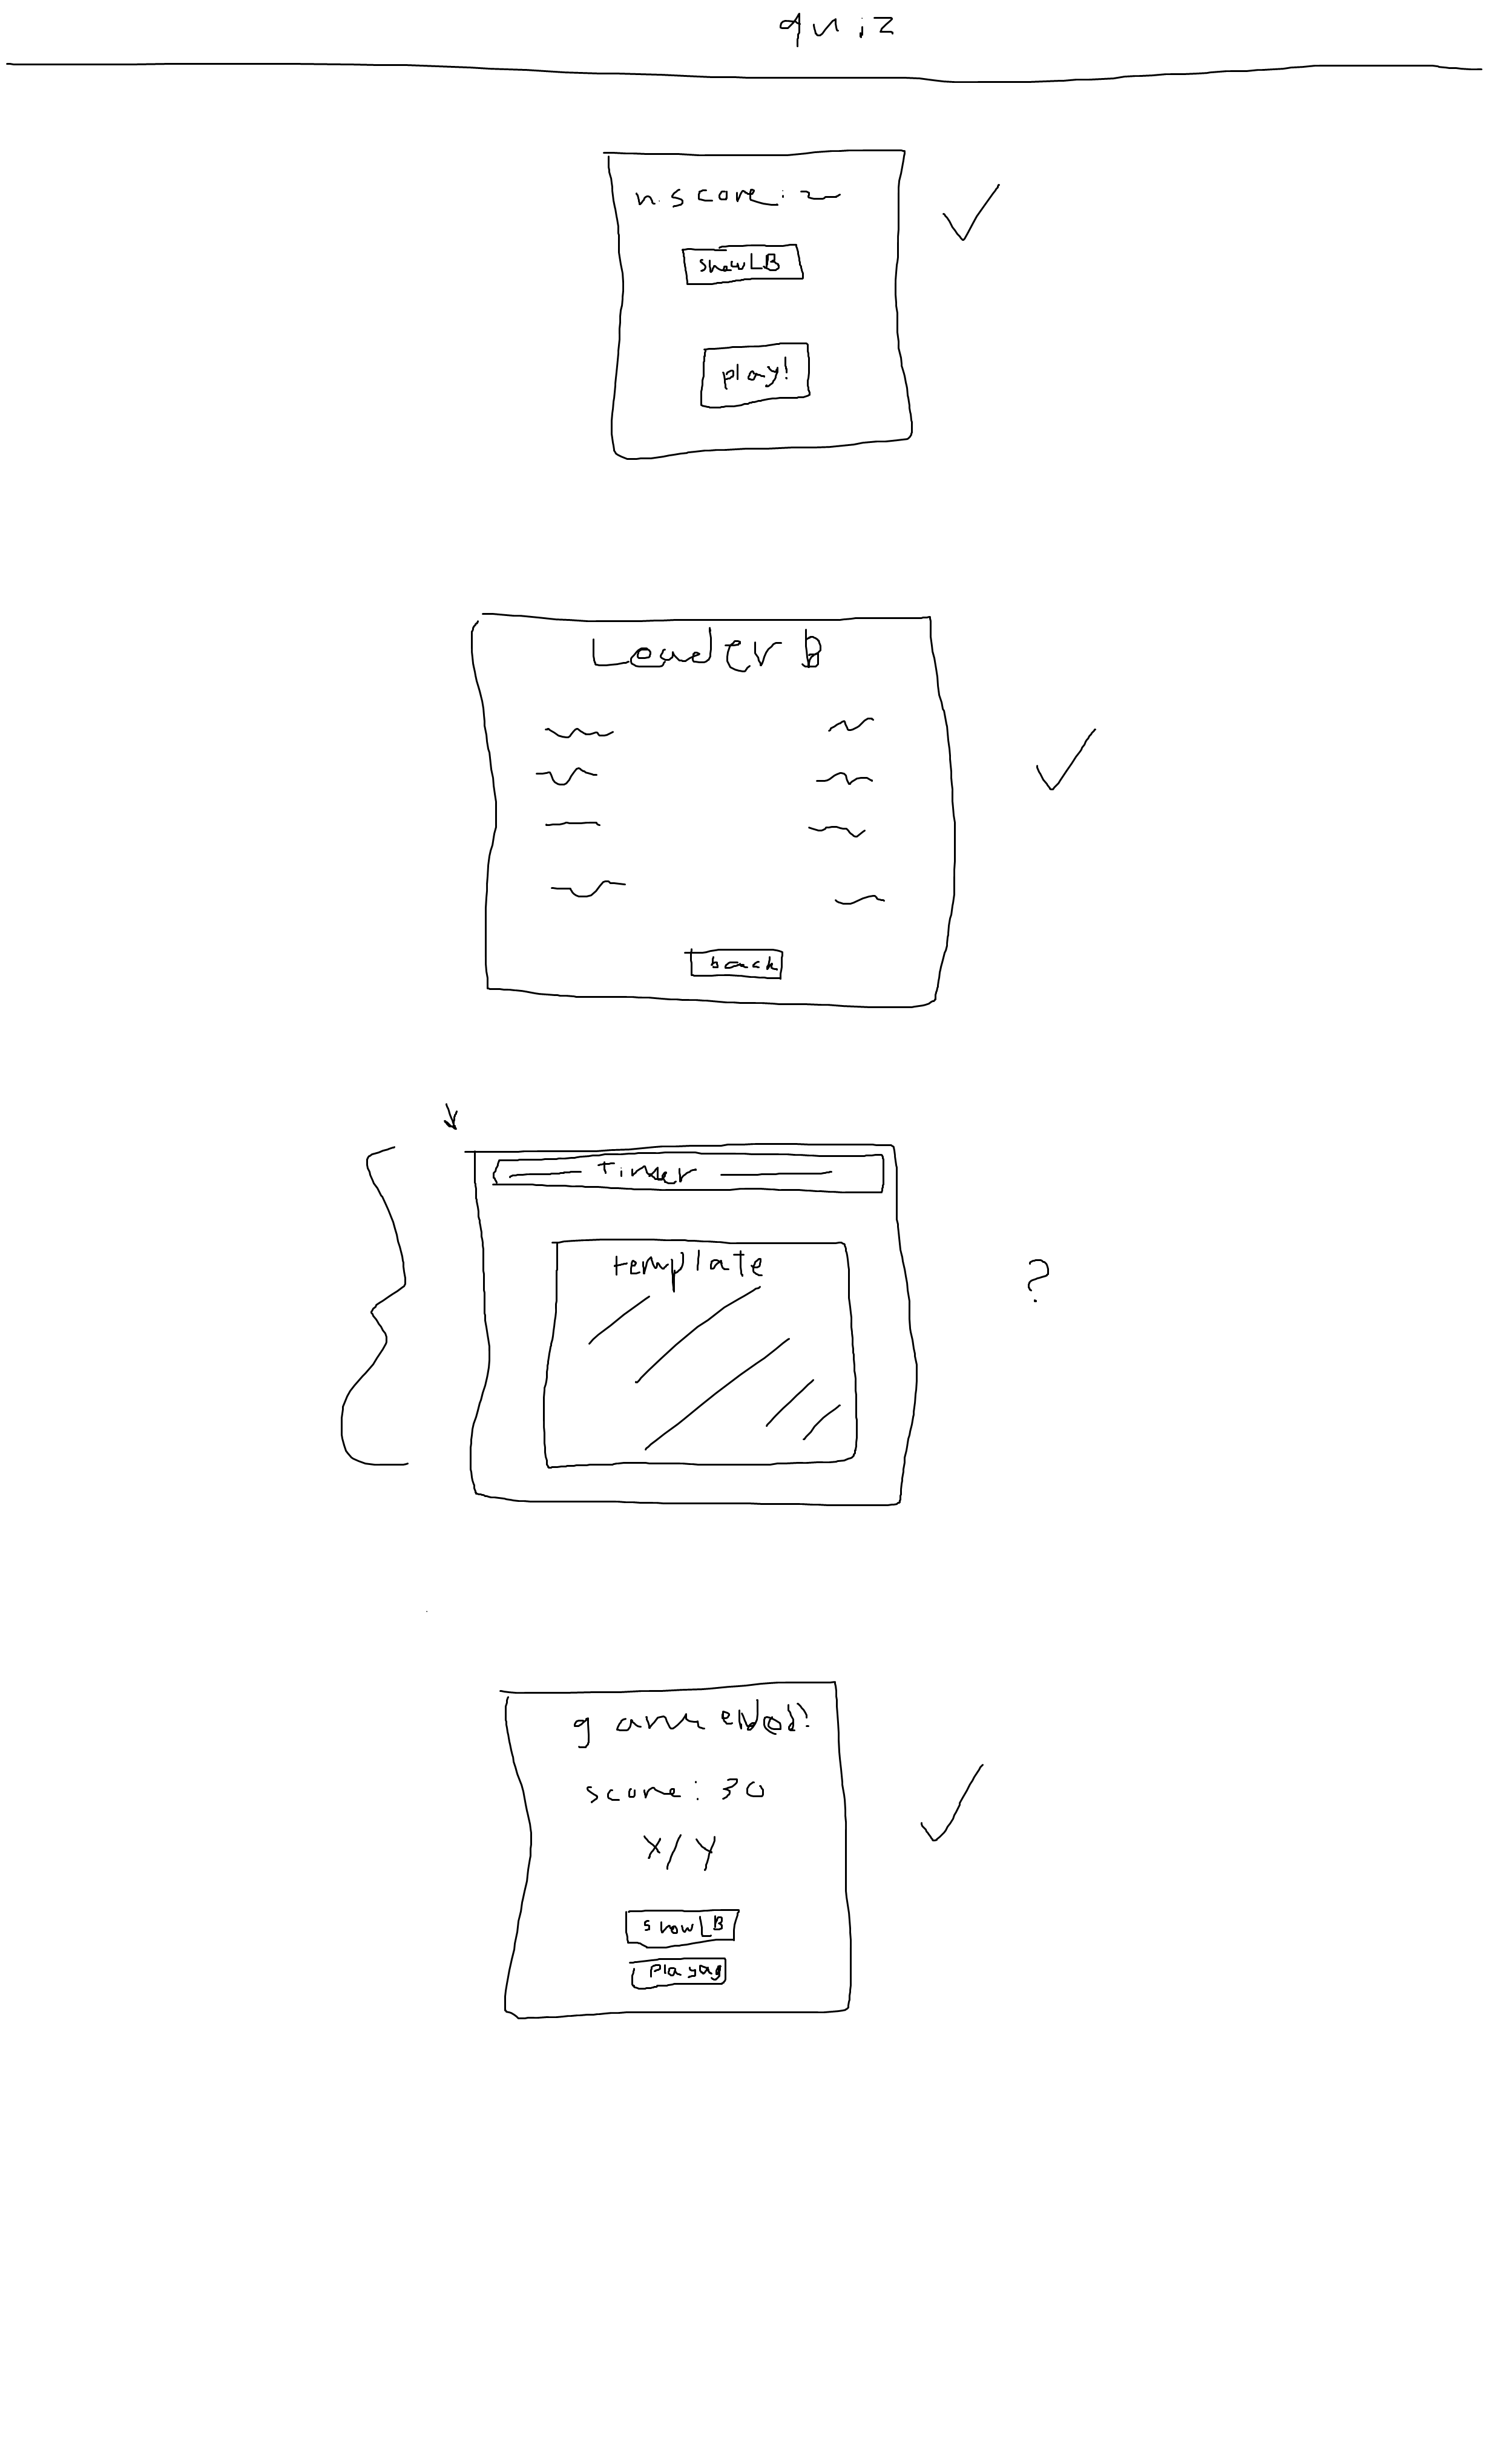 quiz
h.score: ~
show LB
play!
Leader B
back
Timer
template
?
game ended!
score: 30
X/Y
show LB
play ag